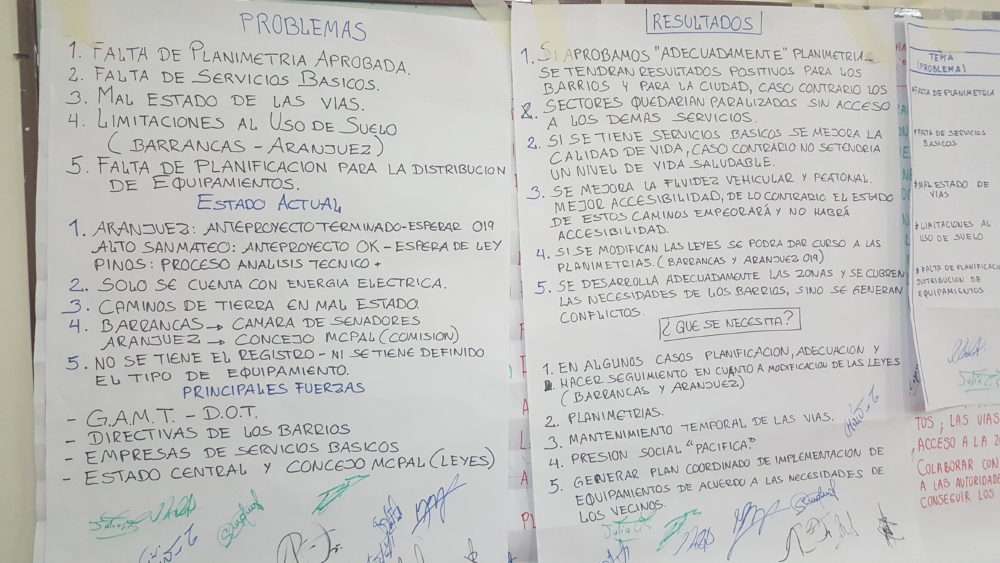 PROBLEMAS
1. FALTA DE PLANIMETRIA APROBADA.
2. FALTA DE SERVICIOS BASICOS.
3. MAL ESTADO DE LAS VIAS.
4. LIMITACIONES AL USO DE SUELO
( BARRANCAS - ARANJUEZ )
5. FALTA DE PLANIFICACION PARA LA DISTRIBUCION
DE EQUIPAMIENTOS.
ESTADO ACTUAL
1. ARANJUEZ: ANTEPROYECTO TERMINADO - ESPERAR 019
ALTO SANMATEO: ANTEPROYECTO OK - ESPERA DE LEY
PINOS: PROCESO ANALISIS TECNICO +
2. SOLO SE CUENTA CON ENERGIA ELECTRICA.
3. CAMINOS DE TIERRA EN MAL ESTADO.
4. BARRANCAS → CAMARA DE SENADORES
ARANJUEZ → CONCEJO MCPAL (COMISION)
5. NO SE TIENE EL REGISTRO - NI SE TIENE DEFINIDO
EL TIPO DE EQUIPAMIENTO.
PRINCIPALES FUERZAS
- G.A.M.T. - D.O.T.
- DIRECTIVAS DE LOS BARRIOS
- EMPRESAS DE SERVICIOS BASICOS
- ESTADO CENTRAL Y CONCEJO MCPAL (LEYES)
RESULTADOS
1. SI APROBAMOS "ADECUADAMENTE" PLANIMETRIAS
SE TENDRAN RESULTADOS POSITIVOS PARA LOS
BARRIOS Y PARA LA CIUDAD, CASO CONTRARIO LOS
SECTORES QUEDARIAN PARALIZADOS SIN ACCESO
A LOS DEMAS SERVICIOS.
2. SI SE TIENE SERVICIOS BASICOS SE MEJORA LA
CALIDAD DE VIDA, CASO CONTRARIO NO SETENDRIA
UN NIVEL DE VIDA SALUDABLE.
3. SE MEJORA LA FLUIDEZ VEHICULAR Y PEATONAL.
MEJOR ACCESIBILIDAD, DE LO CONTRARIO EL ESTADO
DE ESTOS CAMINOS EMPEORARÁ Y NO HABRÁ
ACCESIBILIDAD.
4. SI SE MODIFICAN LAS LEYES SE PODRA DAR CURSO A LAS
PLANIMETRIAS. ( BARRANCAS Y ARANJUEZ 019)
5. SE DESARROLLA ADECUADAMENTE LAS ZONAS Y SE CUBREN
LAS NECESIDADES DE LOS BARRIOS, SINO SE GENERAN
CONFLICTOS.
¿ QUE SE NECESITA ?
1. EN ALGUNOS CASOS PLANIFICACION, ADECUACION Y
HACER SEGUIMIENTO EN CUANTO A MODIFICACION DE LAS LEYES
( BARRANCAS Y ARANJUEZ )
2. PLANIMETRIAS.
3. MANTENIMIENTO TEMPORAL DE LAS VIAS.
4. PRESION SOCIAL "PACIFICA."
5. GENERAR PLAN COORDINADO DE IMPLEMENTACION DE
EQUIPAMIENTOS DE ACUERDO A LAS NECESIDADES DE
LOS VECINOS.
TEMA
(PROBLEMA)
FALTA DE PLANIMETRIA
FALTA DE SERVICIOS
BASICOS
MAL ESTADO DE
VIAS
LIMITACIONES AL
USO DE SUELO
FALTA DE PLANIFICAC
DISTRIBUCION DE
EQUIPAMIENTOS
TOS ; LAS VIAS
ACCESO A LA
COLABORAR CON
A LAS AUTORIDADE
CONSEGUIR LOS